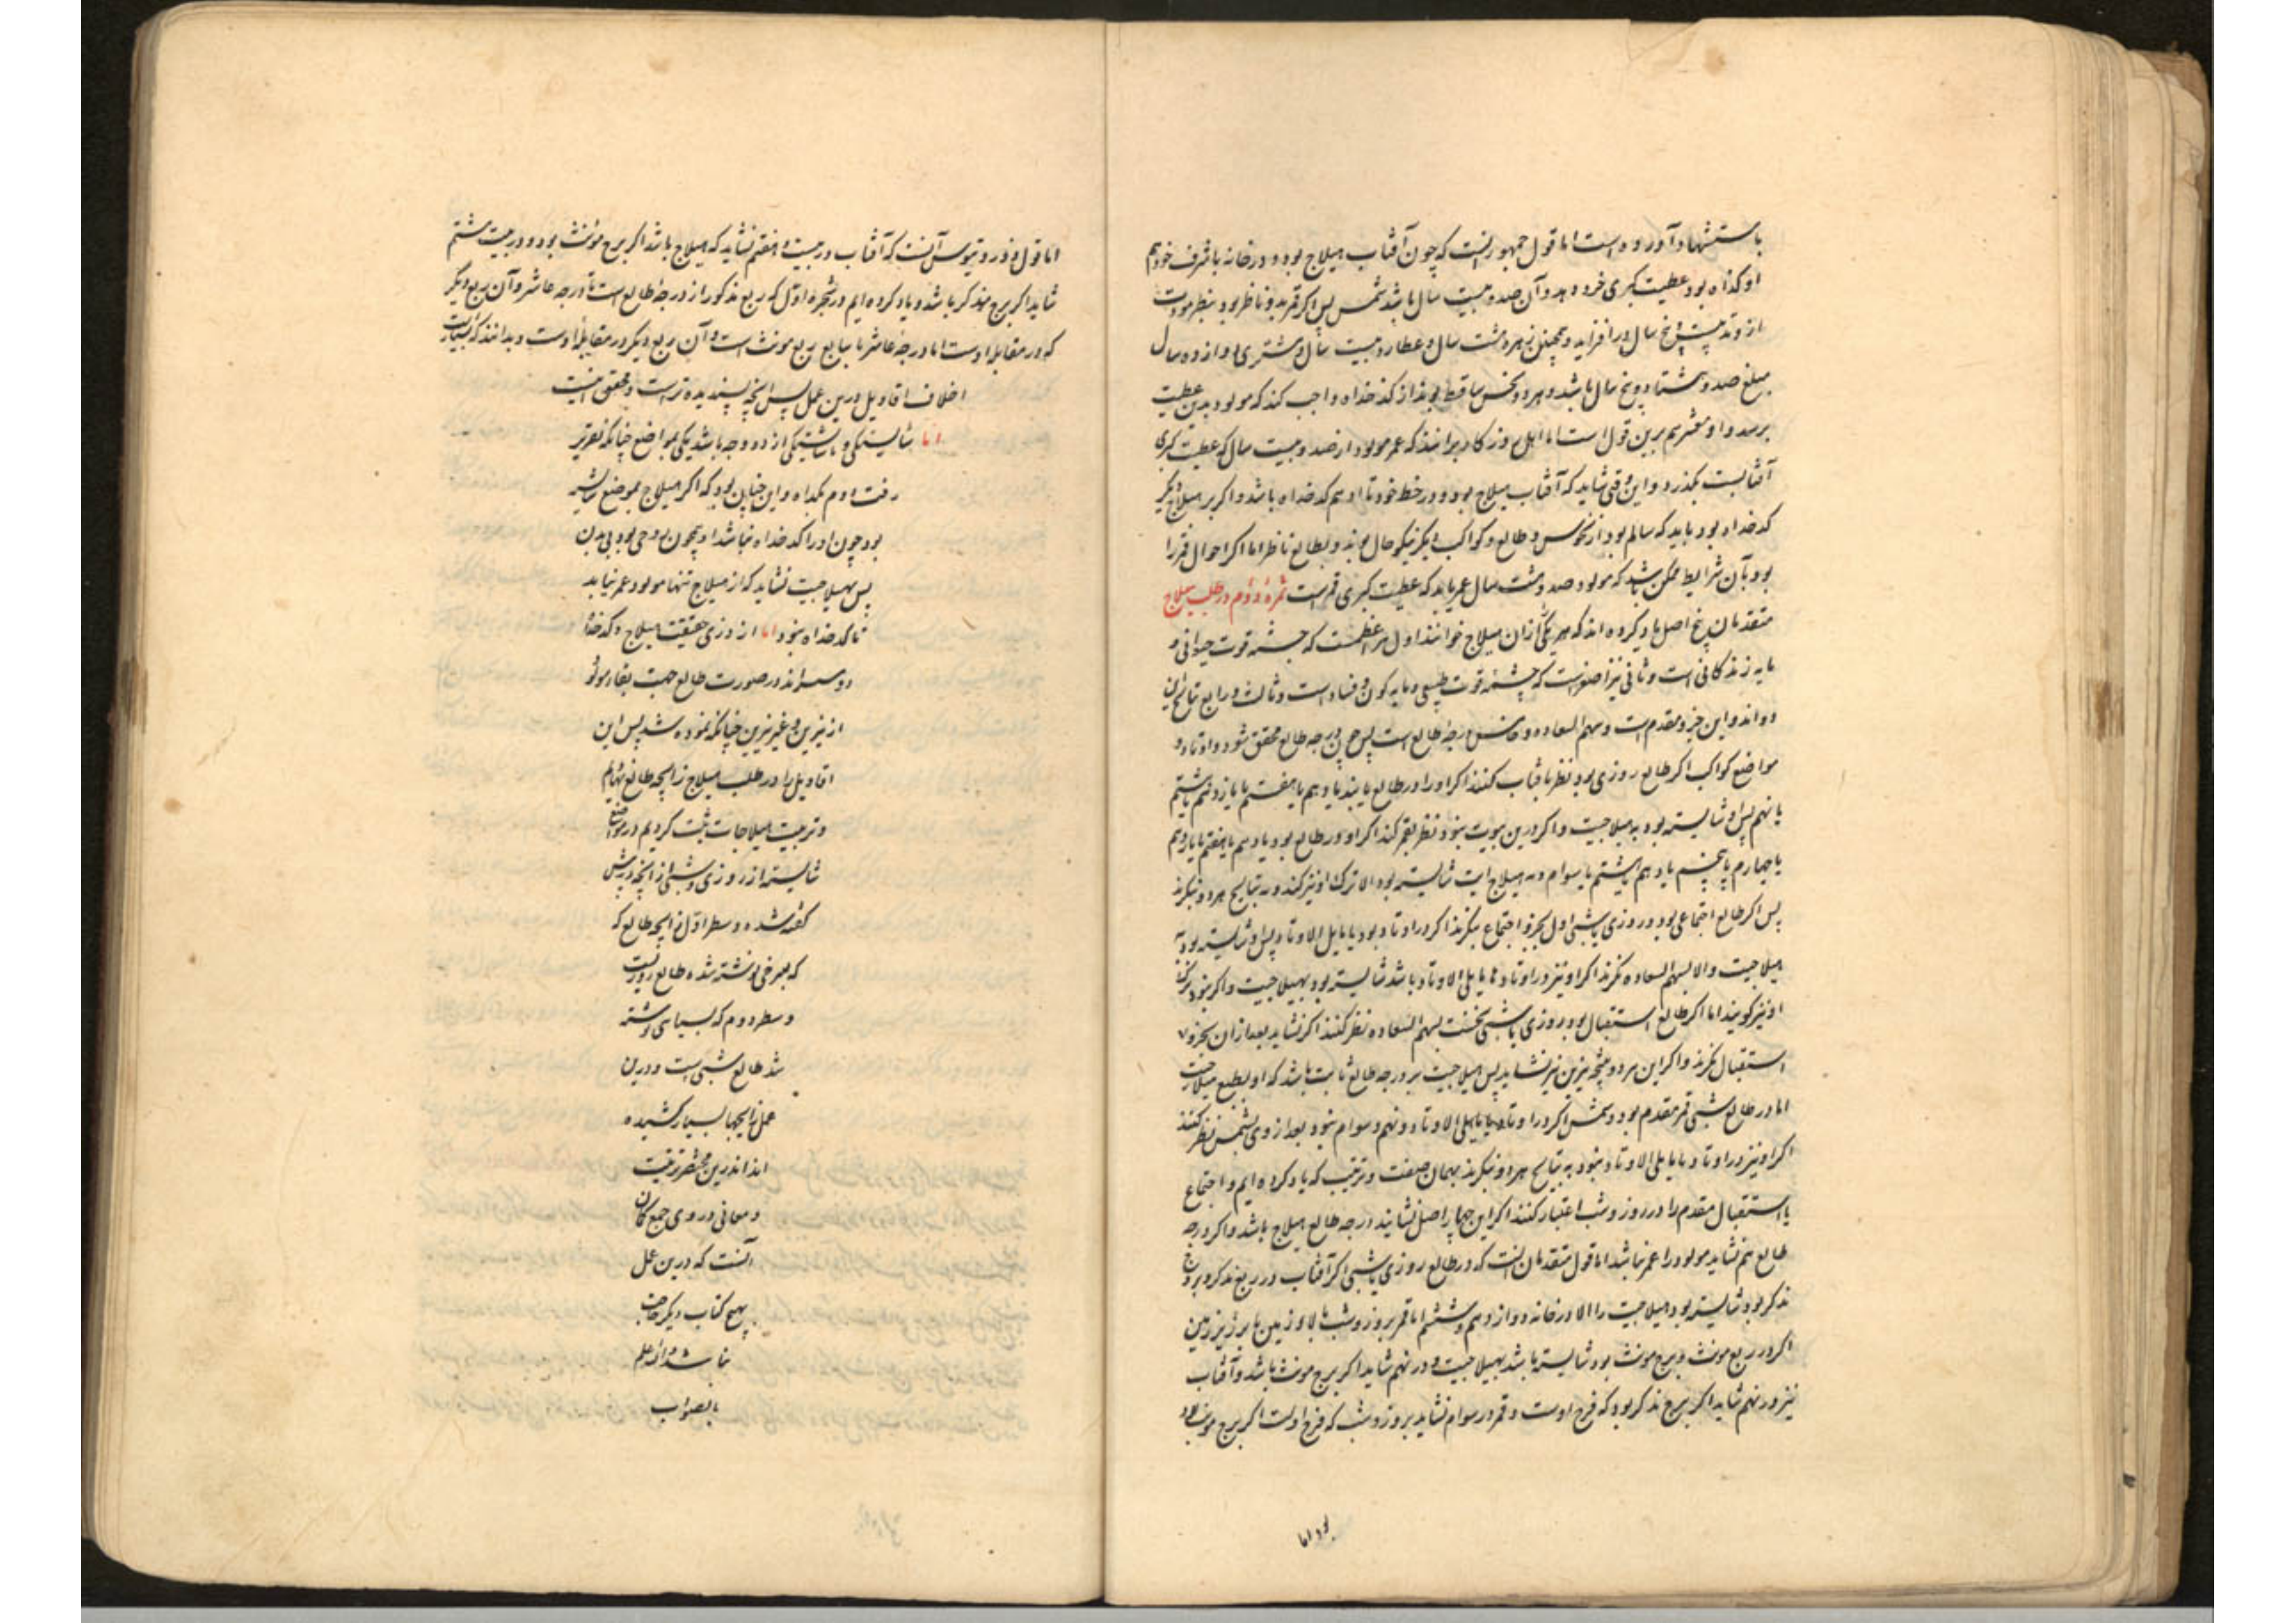 باستشهاد آورده است اما قول جمهور آنست که چون آفتاب هیلاج بود و در خانه یا شرف خود هم
او کدخداه بود عطیت کبری خود دهد و آن صد و بیست سال باشد شمس پس اگر قمر بدو ناظر بود بنظر مودت
از وتد بیست و پنج سال درافزاید و همچنین زهره هشت سال و عطارد بیست سال و مشتری دوازده سال
مبلغ صد و هشتاد و پنج سال باشد و هر دو نحس ساقط بوند از کدخداه واجب کند که مولود بدین عطیت
برسد و ابو معشر هم برین قول است اما اهل روزگار برانند که عمر مولود از صد و بیست سال که عطیت کبری
آفتابست بگذرد و این وقتی شاید که آفتاب هیلاج بود و در حظ خود تا او هم کدخداه باشد و اگر بر هیلاج دیگر
کدخداه بود باید که سالم بود از نحوس و طالع و کواکب دیگر نیکو حال بوند و بطالع ناظر اما اگر احوال قمر را
بود بآن شرایط ممکن باشد که مولود صد و هشت سال عمر یابد که عطیت کبری قمر است ثمره دوم در طلب هیلاج
متقدمان پنج اصل یاد کرده اند که هر یکی را ازان هیلاج خوانند اول نیر اعظمست که چشمه قوت حیوانی و
مایه زندگانی است و ثانی نیر اصغر است که چشمه قوت طبیعی و مایه کون و فساد است و ثالث و رابع نتایج این
دو اند و این جزو مقدم است و سهم السعاده و خامس درجه طالع است پس چون درجه طالع محقق شود و اوتاد و
مواضع کواکب اگر طالع روزی بود نظر بآفتاب کنند اگر او را در طالع یابند یا دهم یا هفتم یا یازدهم یا هشتم
یا نهم پس او شایسته بود به هیلاجیت و اگر درین بیوت نبود نظر بقمر کنند اگر او در طالع بود یا دهم یا هفتم یا یازدهم
یا چهارم یا پنجم یا دهم یا هشتم یا سوام و به هیلاجیت شایسته بود الا ترک او نیز کنند و به نتایج هر دو نگرند
پس اگر طالع اجتماعی بود و روزی یا شبی اول بجزو اجتماع نگرند اگر در اوتاد بود یا مایل الاوتاد پس او شایسته بود به
هیلاجیت والا بسهم السعاده نگرند اگر او نیز در اوتاد یا مایلی الاوتاد باشد شایسته بود بهیلاجیت و اگر نبود ترک
او نیز گویند اما اگر طالع استقبالی بود بروزی یا شبی نخست بسهم السعاده نظر کنند اگر نشاید بعد از ان بجزو
استقبال نگرند و اگر این هر دو نتیجه نیرین نیز نشاید پس هیلاجیت بر درجه طالع ثابت باشد که او بطبع هیلاجست
اما در طالع شبی قمر مقدم بود و شمس اگر در اوتاد یا مایلی الاوتاد و نهم و سوام نبود بعد از وی بشمس نظر کنند
اگر او نیز در اوتاد یا مایلی الاوتاد نبود به نتایج هر دو نگرند بهمان صفت و ترتیب که یاد کرده ایم و اجتماع
یا استقبال مقدم را در روز و شب اعتبار کنند اگر این چهار اصل نشایند درجه طالع هیلاج باشد و اگر درجه
طالع هم نشاید مولود را عمر نباشد اما قول متقدمان آنست که در طالع روزی یا شبی اگر آفتاب در ربع مذکر و برج
مذکر بود شایسته بود هیلاجیت را الا در خانه دوازدهم و ششم اما قمر بروز و شب بالاء زمین یا بر زیر زمین
اگر در ربع مونث و برج مونث بود شایسته باشد بهیلاجیت و در نهم شاید اگر برج مونث باشد و آفتاب
نیز در نهم شاید اگر برج مذکر بود که فرح اوست و قمر در سوام نشاید بروز و شب که فرح اوست اگر برج مونث بود
بود اما
اما قول دوروتیوس آنست که آفتاب در بیت هفتم نشاید که هیلاج باشد اگر برج مونث بود و در بیت هشتم
شاید اگر برج مذکر باشد و یاد کرده ایم در شجره اول که ربع مذکور از درجه طالع است تا درجه عاشر و آن ربع دیگر
که در مقابله اوست اما درجه عاشر تا سابع ربع مونث است و آن ربع دیگر در مقابله اوست و بدانند که بسیارست
اختلاف اقاویل درین عمل پس آنچه پسندیده تر است و محقق اینست
اما شایستگی و ناشایستگی از دو وجه باشد یکی بمواضع چنانکه تقریر
رفت دوم بکدخداه و این چنان بود که اگر هیلاج بموضع شایسته
بود چون او را کدخداه نباشد او همچون روحی بود بی بدن
پس بهیلاجیت نشاید که از هیلاج تنها مولود عمر نیابد
تا کدخداه نبود اما از روی حقیقت هیلاج و کدخداه
دو سر اند در صورت طالع جهت بقاء مولود
از نیرین و غیر نیرین چنانکه نموده شد پس این
اقاویل را در طلب هیلاج زایجه طالع نهادیم
و ترتیب هیلاجات ثبت کردیم در مواضع
شایسته از روزی و شبی از آنچه در پیش
گفته شد و سطر اول زایجه طالع که
که بسرخی نوشته شده طالع روزیست
و سطر دوم که بسیاهی نوشته
شد طالع شبی است و درین
عمل زایجها بسیار کشیده
اند اندرین مختصر ترتیب
و معانی در وی جمع کان
آنست که درین عمل
بهیچ کتاب دیگر حاجت
نباشد والله اعلم
بالصواب